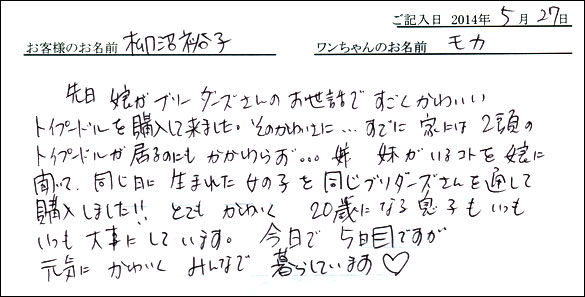 ご記入日 2014年 5月 27日
お客様のお名前 柳沼裕子 ワンちゃんのお名前 モカ
先日 娘がブリーダーズさんのお世話で すごくかわいい
トイプードルを購入して来ました。そのかわいさに…すでに 家には 2頭の
トイプードルが居るのにもかかわらず… 姉 妹がいるコトを娘に
聞いて、同じ日に生まれた女の子を同じブリダーズさんを通して
購入しました!! とても かわいく 20歳になる息子もいつも
いつも 大事にしています。 今日で 5日目ですが
元気に かわいく みんなで 暮らしています♡